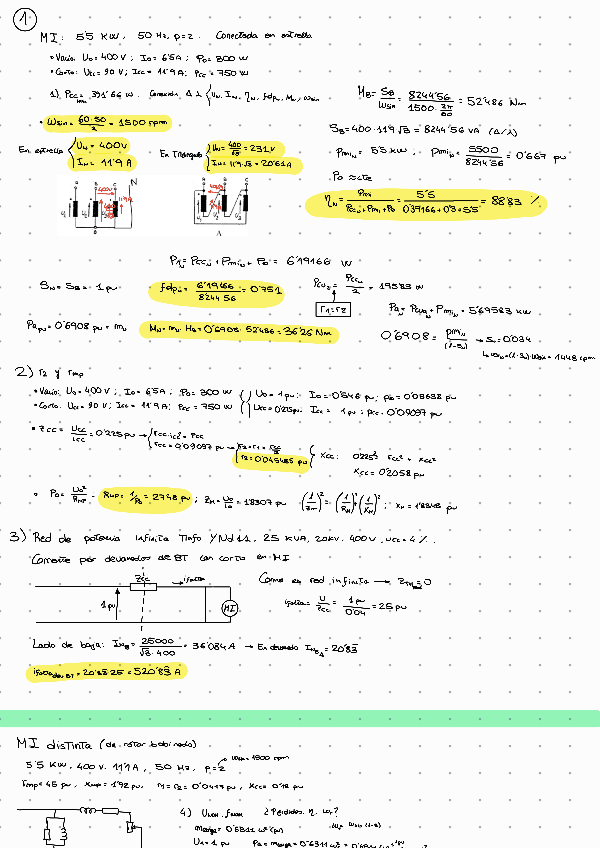 1
MI: 5'5 KW, 50 Hz, p=2. Conectada en estrella
• Vacio: U₀=400V; I₀=6'5A; P₀=300W
• Corto: Ucc=90V; Icc=11'9A; Pcc=750W
1) Pccₙ=391'66 W. Conexión Δ λ { Uₙ, Iₙ, ηₙ, fdpₙ, Mₙ, ωsin
• ωsin = 60·50/2 = 1500 rpm
En estrella { Uₙ=400V
Iₙ=11'9A
En triángulo { Uₙ=400/√3=231V
Iₙ=11'9·√3=20'61A
M_B = S_B/ωsin = 8244'56/(1500·2π/60) = 52'486 Nm
S_B=400·11'9·√3=8244'56 VA (Δ/λ)
Pmiₙ=5'5 kW; pmiₙ=5500/8244'56=0'667 pu
P₀≈cte
ηₙ = Pmiₙ/(Pccₙ+Pmi+P₀) = 5'5/(0'39166+0'3+5'5) = 88'83 %
P₁ₙ=Pccₙ+Pmiₙ+P₀=6'19166 W
Sₙ=S_B=1pu
fdpₙ=6'19166/8244'56=0'751
Pcu₂=Pccₙ/2=195'83 W
r₁=r₂
Paₙ=Pcu₂ₙ+Pmiₙ=5'69583 kW
Pa pu=0'6908 pu=mₙ
Mₙ=mₙ·M_B=0'6908·52'486=36'26 Nm
0'6908=pmiₙ/(1-Sₙ) → Sₙ=0'034
ωₙ=(1-Sₙ)·ωsin=1448 rpm
2) r₂ y rmp
• Vacio: U₀=400V; I₀=6'5A; P₀=300W { U₀=1pu; I₀=0'546 pu; p₀=0'03638 pu
• Corto: Ucc=90V; Icc=11'9A; Pcc=750W { Ucc=0'225pu; Icc=1pu; pcc=0'09097 pu
• Zcc=Ucc/Icc=0'225 pu → { rcc·icc²=Pcc
rcc=0'09097 pu → { r₂=r₁=rcc/2
r₂=0'045485 pu
Xcc: 0'225²=rcc²+Xcc²
Xcc=0'2058 pu
• P₀=U₀²/Rmp → Rmp=1/P₀=27'48 pu; Zm=U₀/I₀=1'8307 pu (1/Zm)²=(1/Rm)²+(1/Xm)²; Xm=1'8348 pu
3) Red de potencia infinita Tinfo YNd11, 25 KVA, 20kV. 400V, ucc=4%.
Corriente por devanados de BT con corto en MI
Zcc ifalta
1pu
MI
Como es red infinita → Zred=0
ifalta=U/Zcc=1pu/0'04=25 pu
Lado de baja: Iₙ_B=25000/(√3·400)=36'084A → En devanado Iₙ_BΔ=20'83
ifaltadev BT=20'83·25=520'83 A
MI distinta (de rotor bobinado)
5'5 KW, 400V. 11'9A, 50 Hz, p=2 ωsin=1500 rpm
rmp=45 pu, Xmp=1'92 pu, r₁=r₂=0'0445 pu, Xcc=0'12 pu
4) ¿Perdidas, η, ω₂?
U₁=1 pu